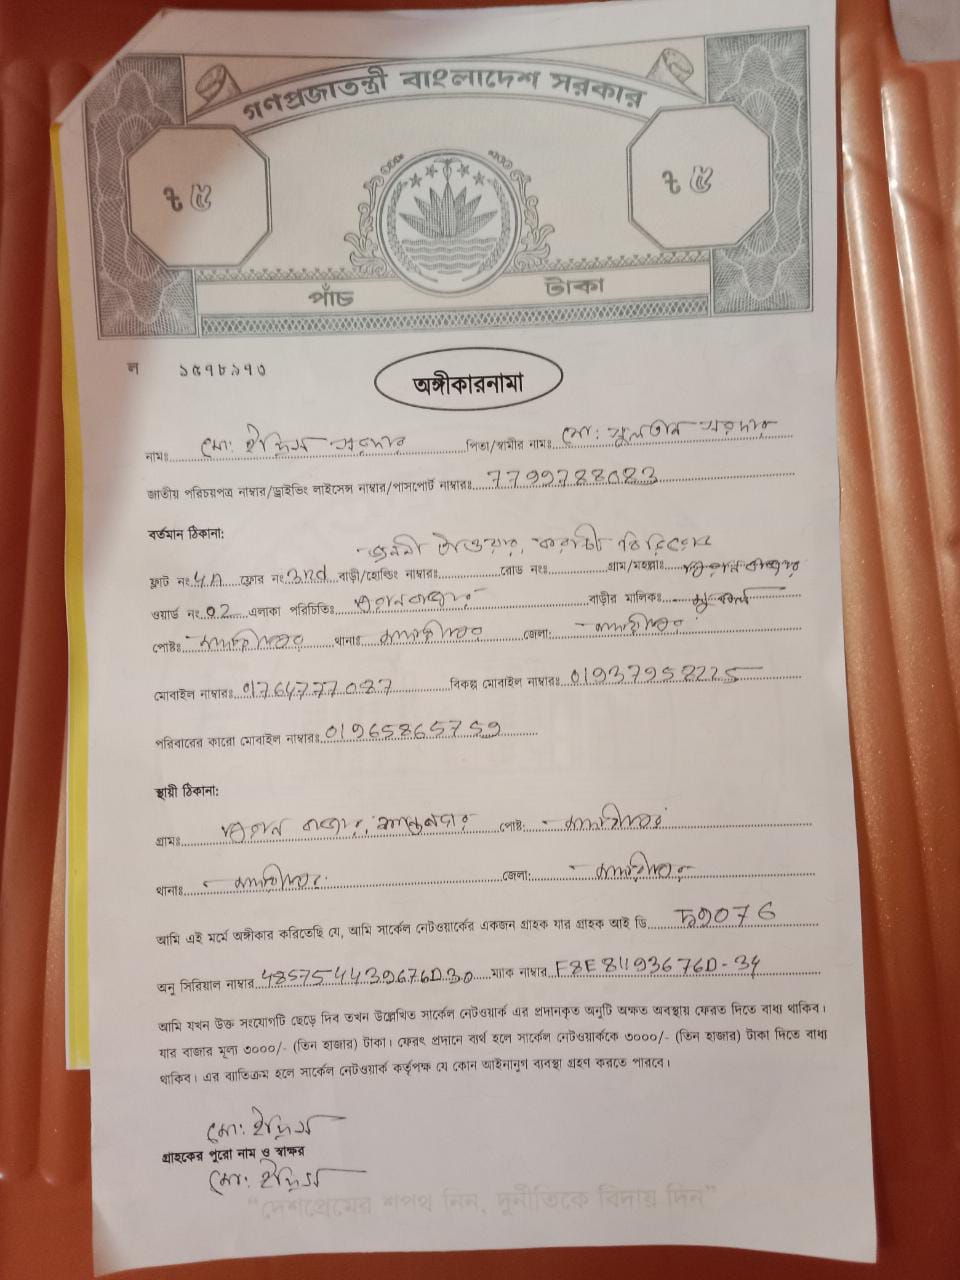 গণপ্রজাতন্ত্রী বাংলাদেশ সরকার
৳ ৫ ৳ ৫
পাঁচ টাকা
ল ১৫৭৮৯৭০
অঙ্গীকারনামা
নামঃ মো: ইদ্রিস সরদার পিতা/স্বামীর নামঃ মো: সুলতান সরদার
জাতীয় পরিচয়পত্র নাম্বার/ড্রাইভিং লাইসেন্স নাম্বার/পাসপোর্ট নাম্বারঃ
বর্তমান ঠিকানা:
জননী টাওয়ার,
ফ্লাট নং 4A ফ্লোর নং 3nd বাড়ী/হোল্ডিং নাম্বারঃ রোড নংঃ গ্রাম/মহল্লাঃ
ওয়ার্ড নং 02 এলাকা পরিচিতিঃ বাড়ীর মালিকঃ
পোষ্টঃ থানাঃ জেলা:
মোবাইল নাম্বারঃ 01764777087 বিকল্প মোবাইল নাম্বারঃ
পরিবারের কারো মোবাইল নাম্বারঃ 01965865759
স্থায়ী ঠিকানা:
গ্রামঃ পোষ্ট:
থানাঃ জেলা:
আমি এই মর্মে অঙ্গীকার করিতেছি যে, আমি সার্কেল নেটওয়ার্কের একজন গ্রাহক যার গ্রাহক আই ডি
অনু সিরিয়াল নাম্বার 485754439676D30 ম্যাক নাম্বার F8E81193676D-34
আমি যখন উক্ত সংযোগটি ছেড়ে দিব তখন উল্লেখিত সার্কেল নেটওয়ার্ক এর প্রদানকৃত অনুটি অক্ষত অবস্থায় ফেরত দিতে বাধ্য থাকিব।
যার বাজার মূল্য ৩০০০/- (তিন হাজার) টাকা। ফেরৎ প্রদানে ব্যর্থ হলে সার্কেল নেটওয়ার্ককে ৩০০০/- (তিন হাজার) টাকা দিতে বাধ্য
থাকিব। এর ব্যতিক্রম হলে সার্কেল নেটওয়ার্ক কর্তৃপক্ষ যে কোন আইনানুগ ব্যবস্থা গ্রহণ করতে পারবে।
মো: ইদ্রিস
গ্রাহকের পুরো নাম ও স্বাক্ষর
মো: ইদ্রিস
“দেশপ্রেমের শপথ নিন, দুর্নীতিকে বিদায় দিন”